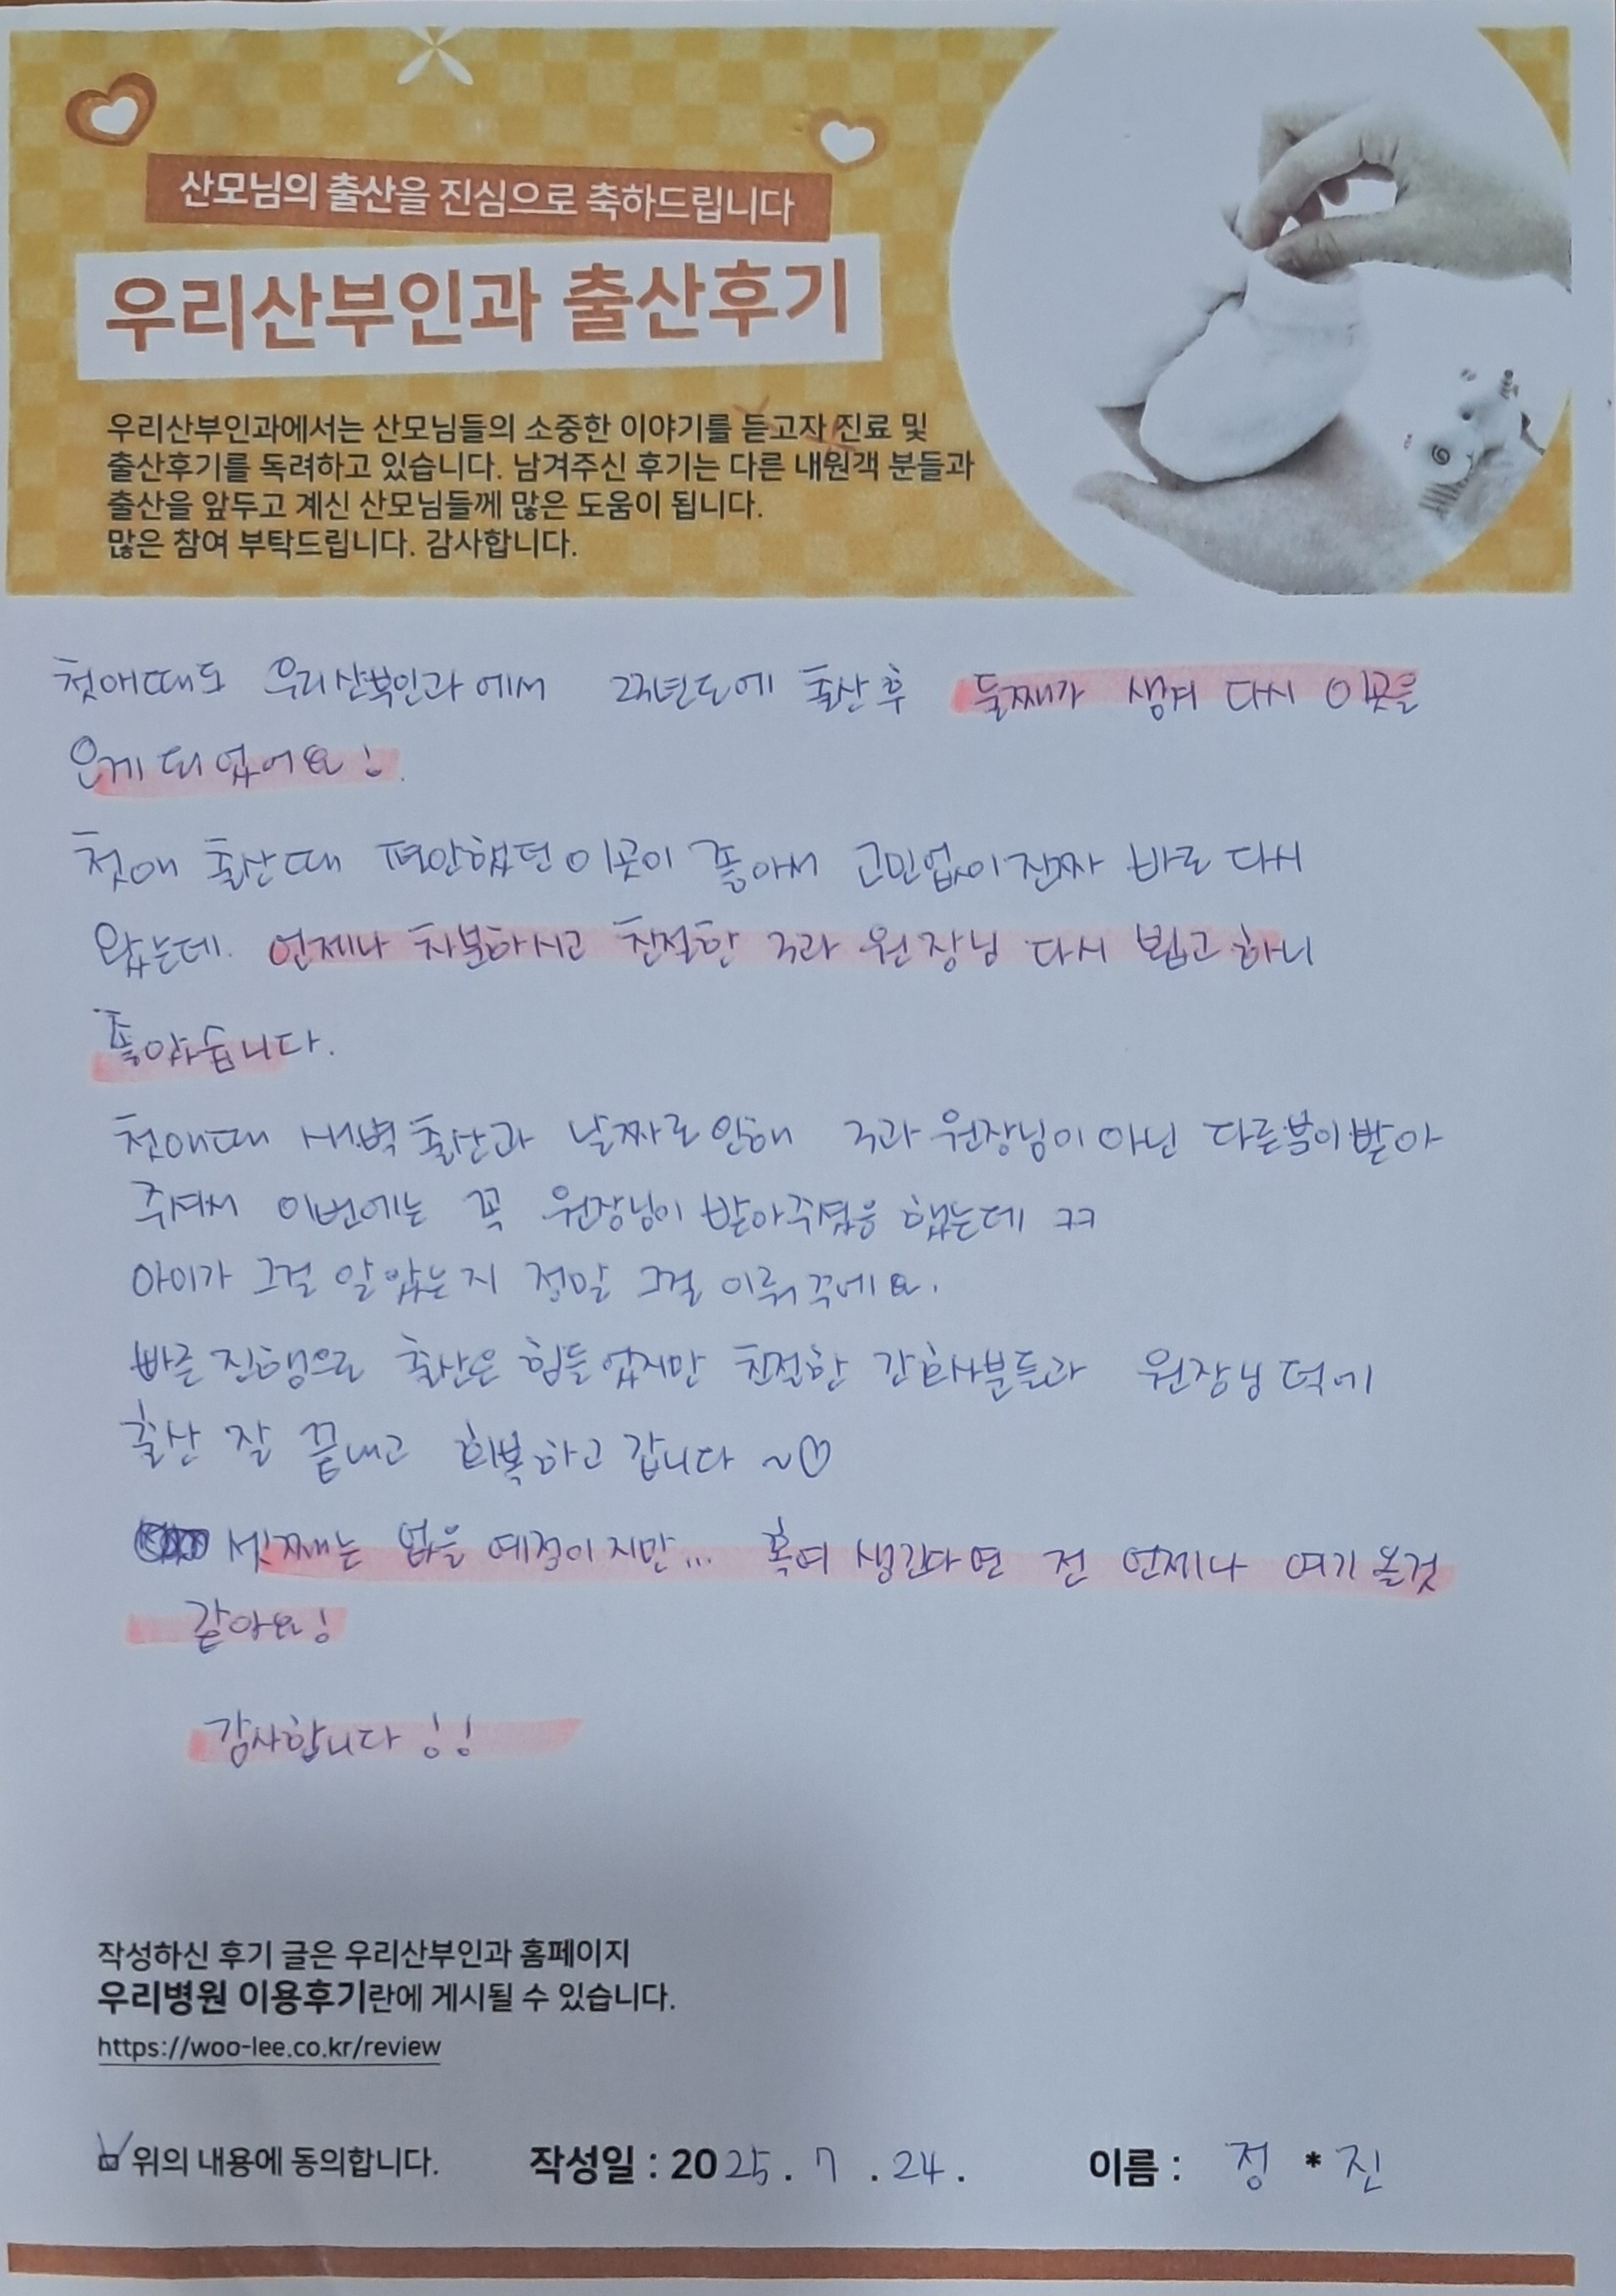 산모님의 출산을 진심으로 축하드립니다
우리산부인과 출산후기
우리산부인과에서는 산모님들의 소중한 이야기를 듣고자 진료 및
출산후기를 독려하고 있습니다. 남겨주신 후기는 다른 내원객 분들과
출산을 앞두고 계신 산모님들께 많은 도움이 됩니다.
많은 참여 부탁드립니다. 감사합니다.
첫애때도 우리산부인과에서 23년도에 출산후 둘째가 생겨 다시 이곳을
오게 되었어요!
첫애 출산때 편안했던 이곳이 좋아서 고민없이 진짜 바로 다시
왔는데. 언제나 차분하시고 친절한 3과 원장님 다시 뵙고 하니
좋았습니다.
첫애때 새벽출산과 날짜로 인해 3과 원장님이 아닌 다른분이 받아
주셔서 이번에는 꼭 원장님이 받아주셨음 했는데 ㅋㅋ
아이가 그걸 알았는지 정말 그걸 이뤄주네요.
빠른 진행으로 출산은 힘들었지만 친절한 간호사분들과 원장님 덕에
출산 잘 끝내고 회복하고 갑니다 ~♡
셋째는 없을 예정이지만... 혹여 생긴다면 전 언제나 여기 올것
같아요!
감사합니다!!
작성하신 후기 글은 우리산부인과 홈페이지
우리병원 이용후기란에 게시될 수 있습니다.
https://woo-lee.co.kr/review
위의 내용에 동의합니다. 작성일 : 2025. 7. 24. 이름 : 정 * 진